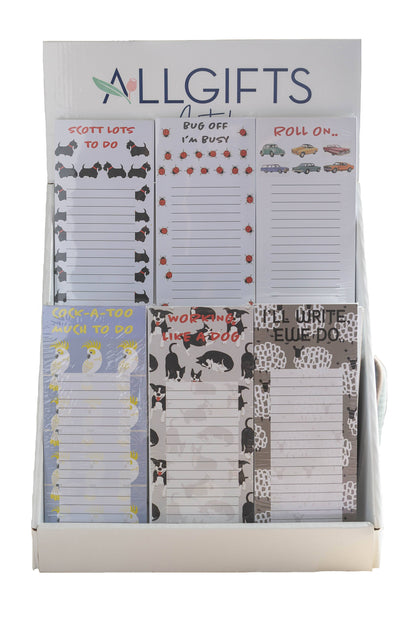 ALLGIFTS
SCOTT LOTS
TO DO
BUG OFF
I'M BUSY
ROLL ON..
COCK-A-TOO
MUCH TO DO
WORKING
LIKE A DOG
I'LL WRITE
EWE DO..